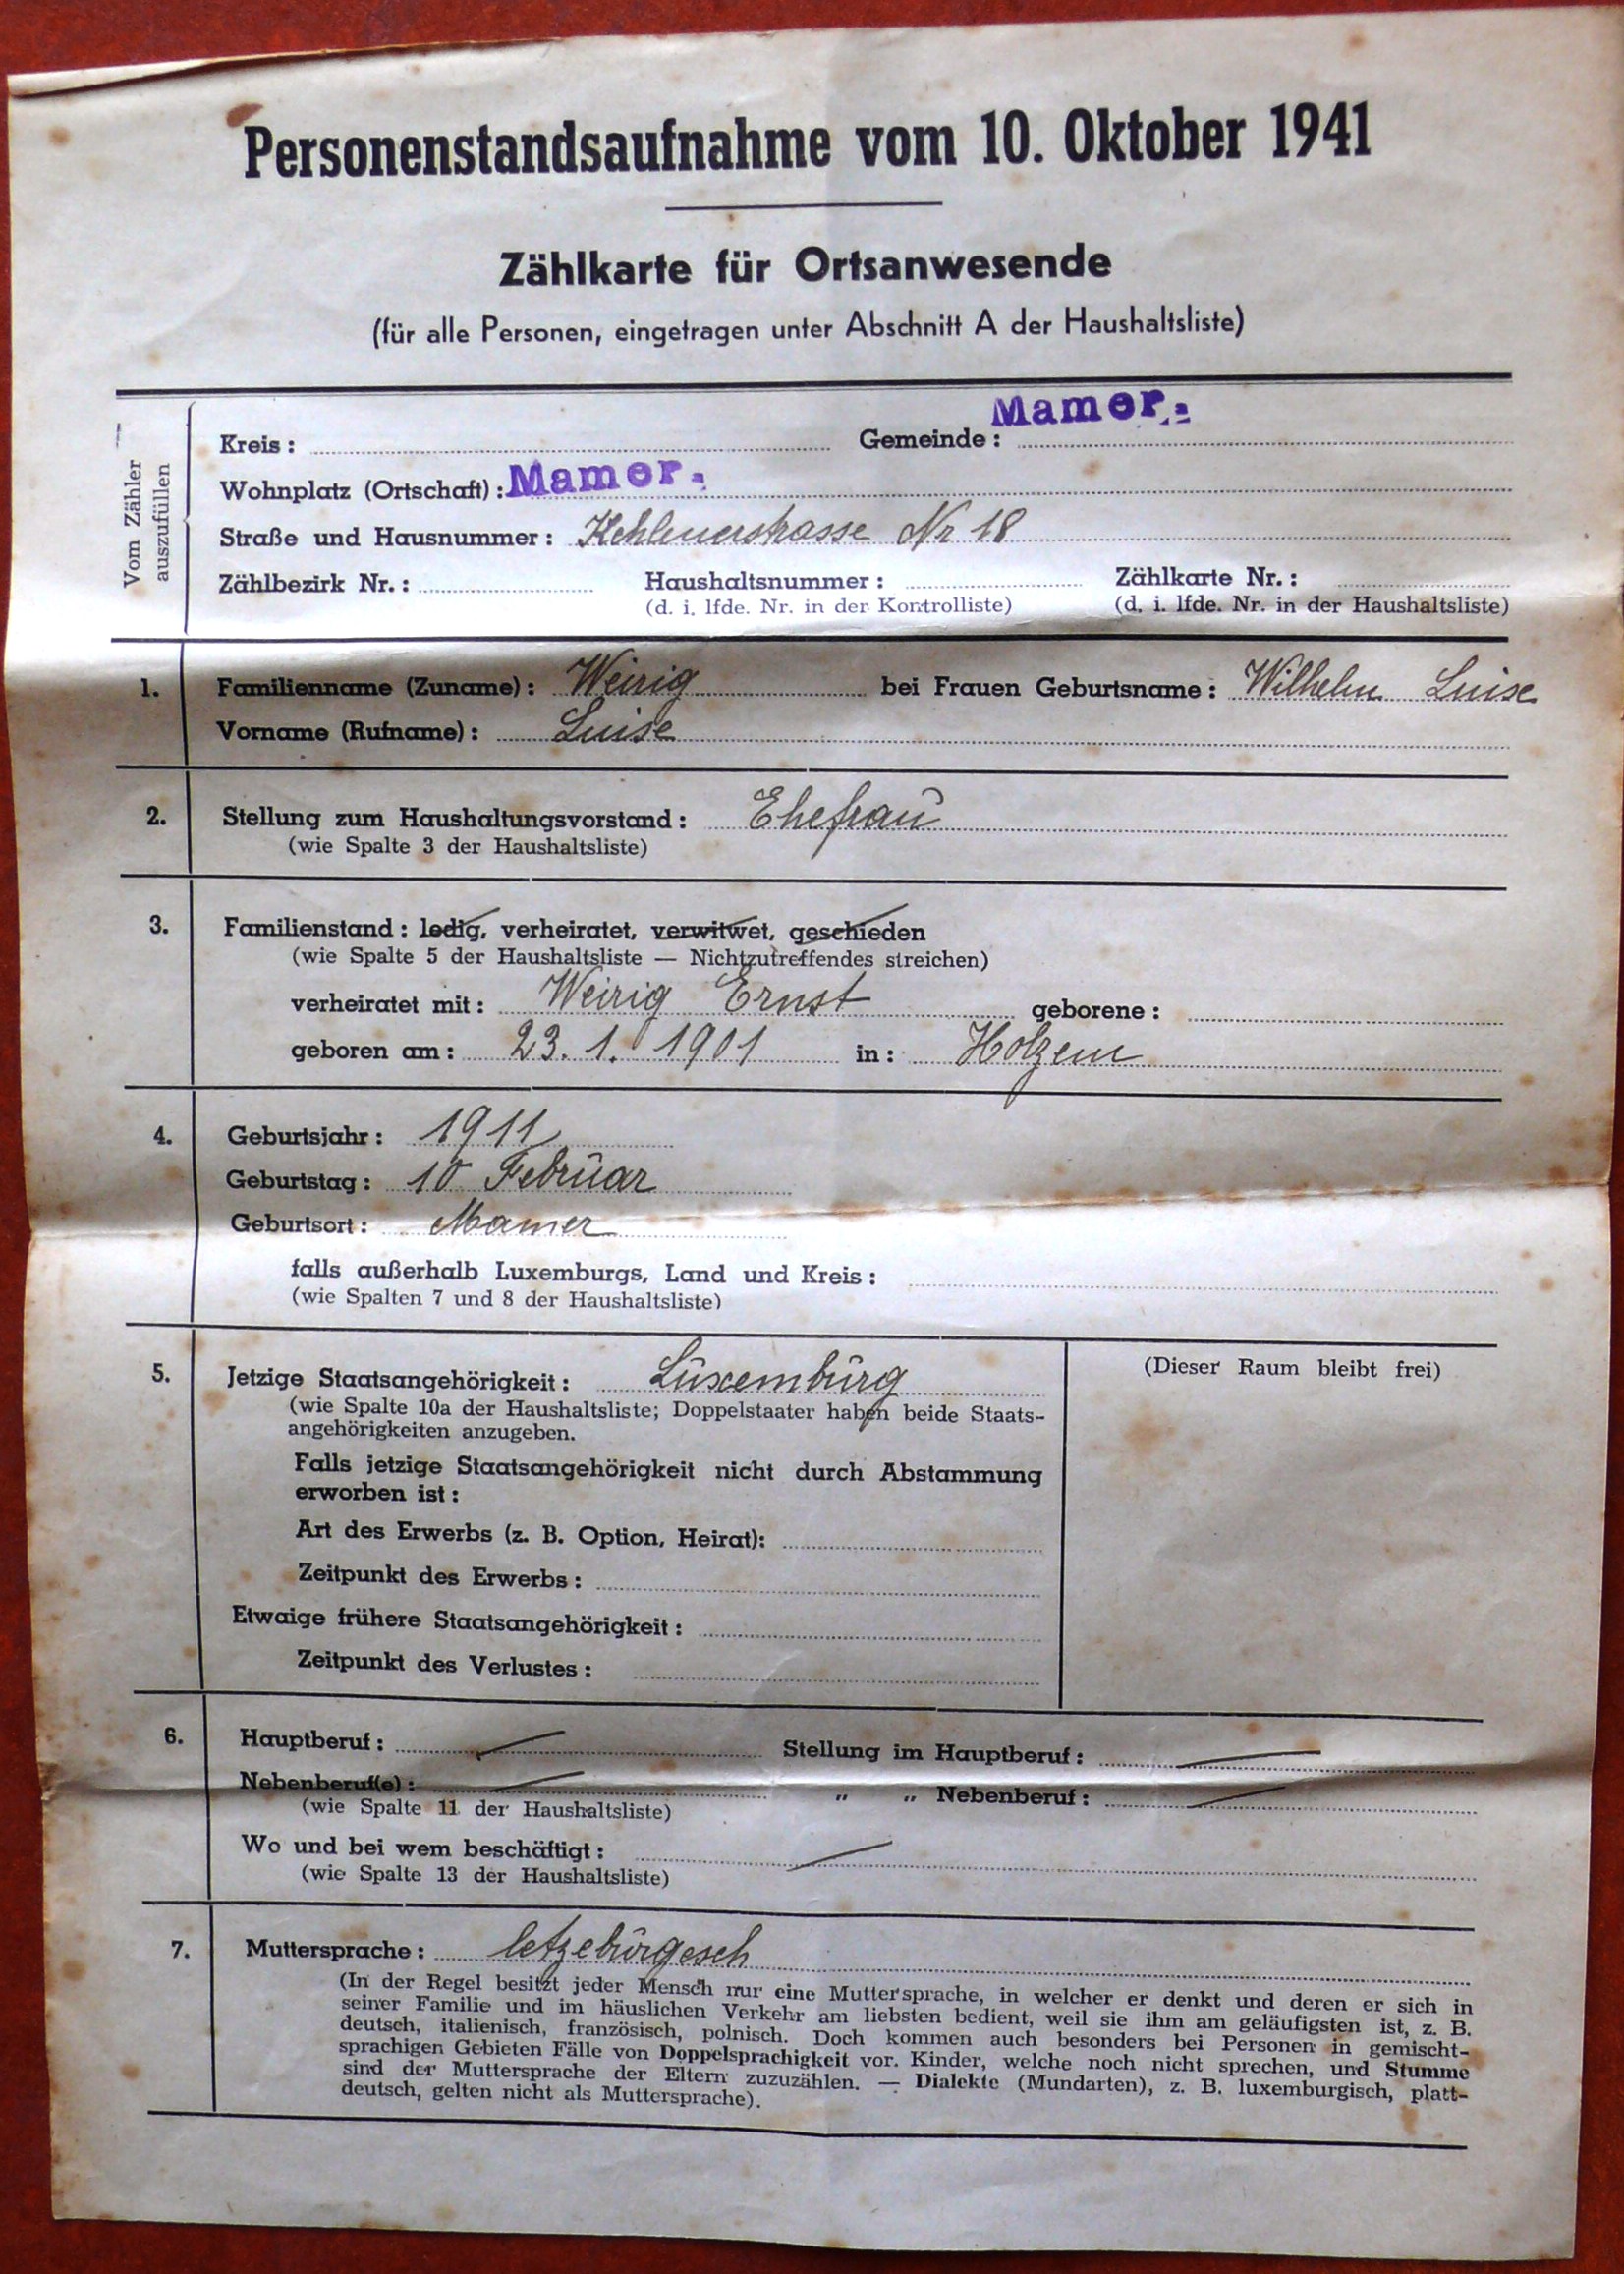 Personenstandsaufnahme vom 10. Oktober 1941
Zählkarte für Ortsanwesende
(für alle Personen, eingetragen unter Abschnitt A der Haushaltsliste)
Vom Zähler
auszufüllen
Kreis : Gemeinde : Mamer.
Wohnplatz (Ortschaft) : Mamer.
Straße und Hausnummer : Kehlenerstrasse Nr 18
Zählbezirk Nr. : Haushaltsnummer : Zählkarte Nr. :
(d. i. lfde. Nr. in der Kontrolliste) (d. i. lfde. Nr. in der Haushaltsliste)
1. Familienname (Zuname) : Weirig bei Frauen Geburtsname : Wilhelm Luise
Vorname (Rufname) : Luise
2. Stellung zum Haushaltungsvorstand : Ehefrau
(wie Spalte 3 der Haushaltsliste)
3. Familienstand : ledig, verheiratet, verwitwet, geschieden
(wie Spalte 5 der Haushaltsliste — Nichtzutreffendes streichen)
verheiratet mit : Weirig Ernst geborene :
geboren am : 23. 1. 1901 in : Holzem
4. Geburtsjahr : 1911
Geburtstag : 10 Februar
Geburtsort : Mamer
falls außerhalb Luxemburgs, Land und Kreis :
(wie Spalten 7 und 8 der Haushaltsliste)
5. Jetzige Staatsangehörigkeit : Luxemburg
(wie Spalte 10a der Haushaltsliste; Doppelstaater haben beide Staats-
angehörigkeiten anzugeben.
Falls jetzige Staatsangehörigkeit nicht durch Abstammung
erworben ist :
Art des Erwerbs (z. B. Option, Heirat):
Zeitpunkt des Erwerbs :
Etwaige frühere Staatsangehörigkeit :
Zeitpunkt des Verlustes :
(Dieser Raum bleibt frei)
6. Hauptberuf : Stellung im Hauptberuf :
Nebenberuf(e) : „ „ Nebenberuf :
(wie Spalte 11 der Haushaltsliste)
Wo und bei wem beschäftigt :
(wie Spalte 13 der Haushaltsliste)
7. Muttersprache : letzebürgesch
(In der Regel besitzt jeder Mensch nur eine Muttersprache, in welcher er denkt und deren er sich in
seiner Familie und im häuslichen Verkehr am liebsten bedient, weil sie ihm am geläufigsten ist, z. B.
deutsch, italienisch, französisch, polnisch. Doch kommen auch besonders bei Personen in gemischt-
sprachigen Gebieten Fälle von Doppelsprachigkeit vor. Kinder, welche noch nicht sprechen, und Stumme
sind der Muttersprache der Eltern zuzuzählen. — Dialekte (Mundarten), z. B. luxemburgisch, platt-
deutsch, gelten nicht als Muttersprache).